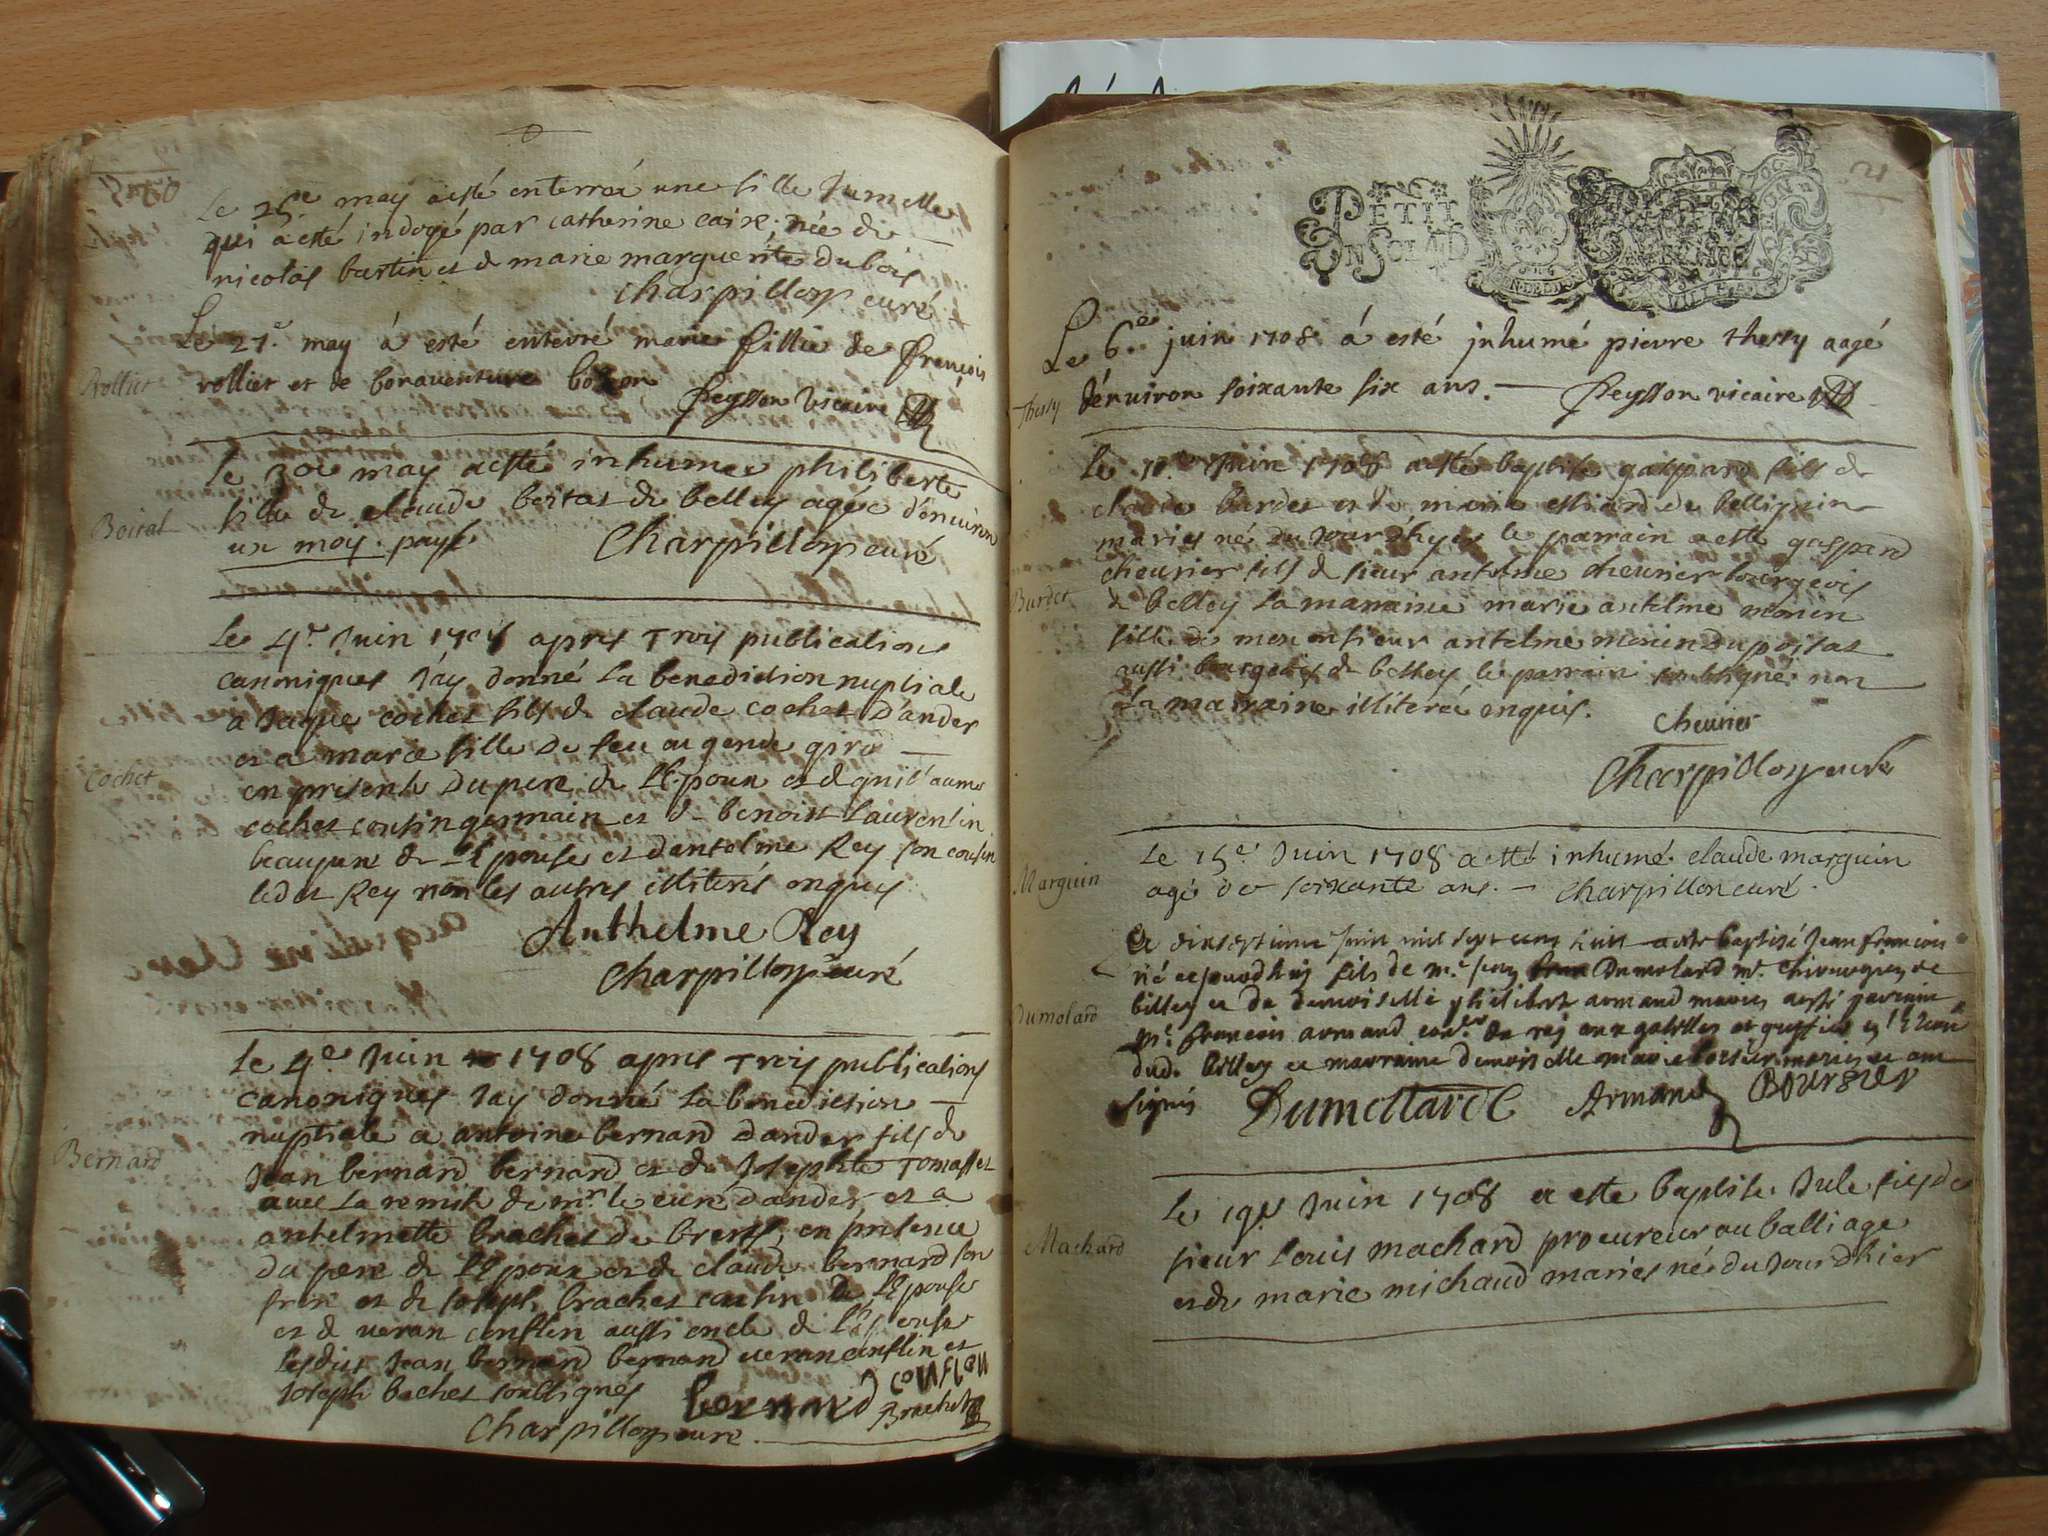 Le 25e may a esté enterré une fille Jumelle
qui a esté indoyé par Catherine caire, née de
nicolas bertin et de marie marguerite dubois
Charpillon curé
Rolliet
Le 27e may à esté enterré marie fillie de françois
rolliet et de bonaventure
peysson vicaire
Boirat
le 30e may a esté inhumee philiberte
fille de claude de belley agée d'environ
un moy. payé.
Charpillon curé
Cochet
Le 4e Juin 1708 apres Trois publications
canoniques J'ay donné la benediction nuptiale
a Jaque cochet fils de claude cochet D'ander
et a marie fille de feu
en presence du pere de l'Epoux et de guil'aume
cochet cousin germain et de benoist Laurentin
beaupere de l'Epouse et d'antelme Rey son cousin
ledit Rey non les autres illiterés enquis
Anthelme Rey
Charpillon curé
Bernard
Le 4e Juin 1708 apres Trois publications
canoniques Jay donné la benediction
nuptiale a antoine bernard D'ander fils de
Jean bernard bernard et de Josephte Tomasset
avec la remise de mr. le curé d'ander et a
antelmette brachet de brens, en presence
du pere de l'Epoux et de claude bernard son
frere et de Joseph brachet cousin de l'Epouse
et de veran conflin aussi oncle de l'Epouse
lesdits Jean bernard bernard veran conflin et
Joseph bachet soubsignés
bernard
Brachet
Charpillon curé
21
PETIT
UN SOL 4 D
Thesy
Le 6e juin 1708 á esté jnhumé pierre thesy aagé
d'environ soixante six ans.
peysson vicaire
Burdet
Le 10e Juin 1708 a esté baptisé gaspard fils de
claude burdet et de marie de
mariés né du Jour d'hyer le parrain a esté gaspard
chevrier fils de sieur antelme chevrier bourgeois
de belley la marraine marie antelme monin
fille de monsieur antelme monin
aussi bourgeois de belley le parrain soubsigné non
la marraine illiterée enquis.
Chevrier
Charpillon curé
Marguin
Le 15e Juin 1708 a esté inhumé claude marguin
agé de soixante ans.
Charpillon curé.
Dumolard
Le dixseptieme Juin mil sept cens huit a este baptisé Jean francois
né cejourdhuy fils de me. Dumolard me. chirurgien de
belley et de demoiselle philiberte armand mariés a esté parrain
me. francois armand du roy aux gabelles
dud. belley et marraine demoiselle marie
signés
Dumollard
Armand
Boursier
Machard
Le 19e Juin 1708 a este baptisé Jule fils de
sieur Louis machard procureur au balliage
et de marie michaud mariés né du Jour d'hier